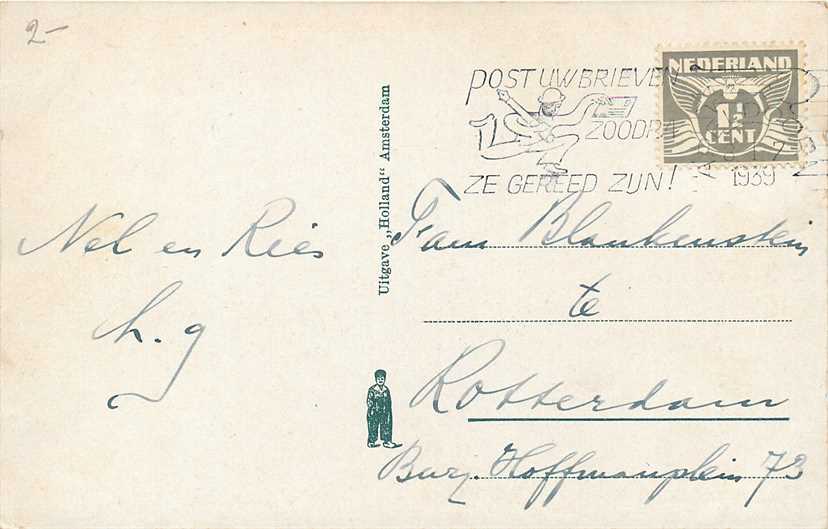 2-
POST UW BRIEVEN
ZOODRA
ZE GEREED ZIJN!
NEDERLAND
1½
CENT
1939
Uitgave „Holland" Amsterdam
Nel en Riès
h. g
Fam Blankenstein
te
Rotterdam
Burg. Hoffmanplein 73